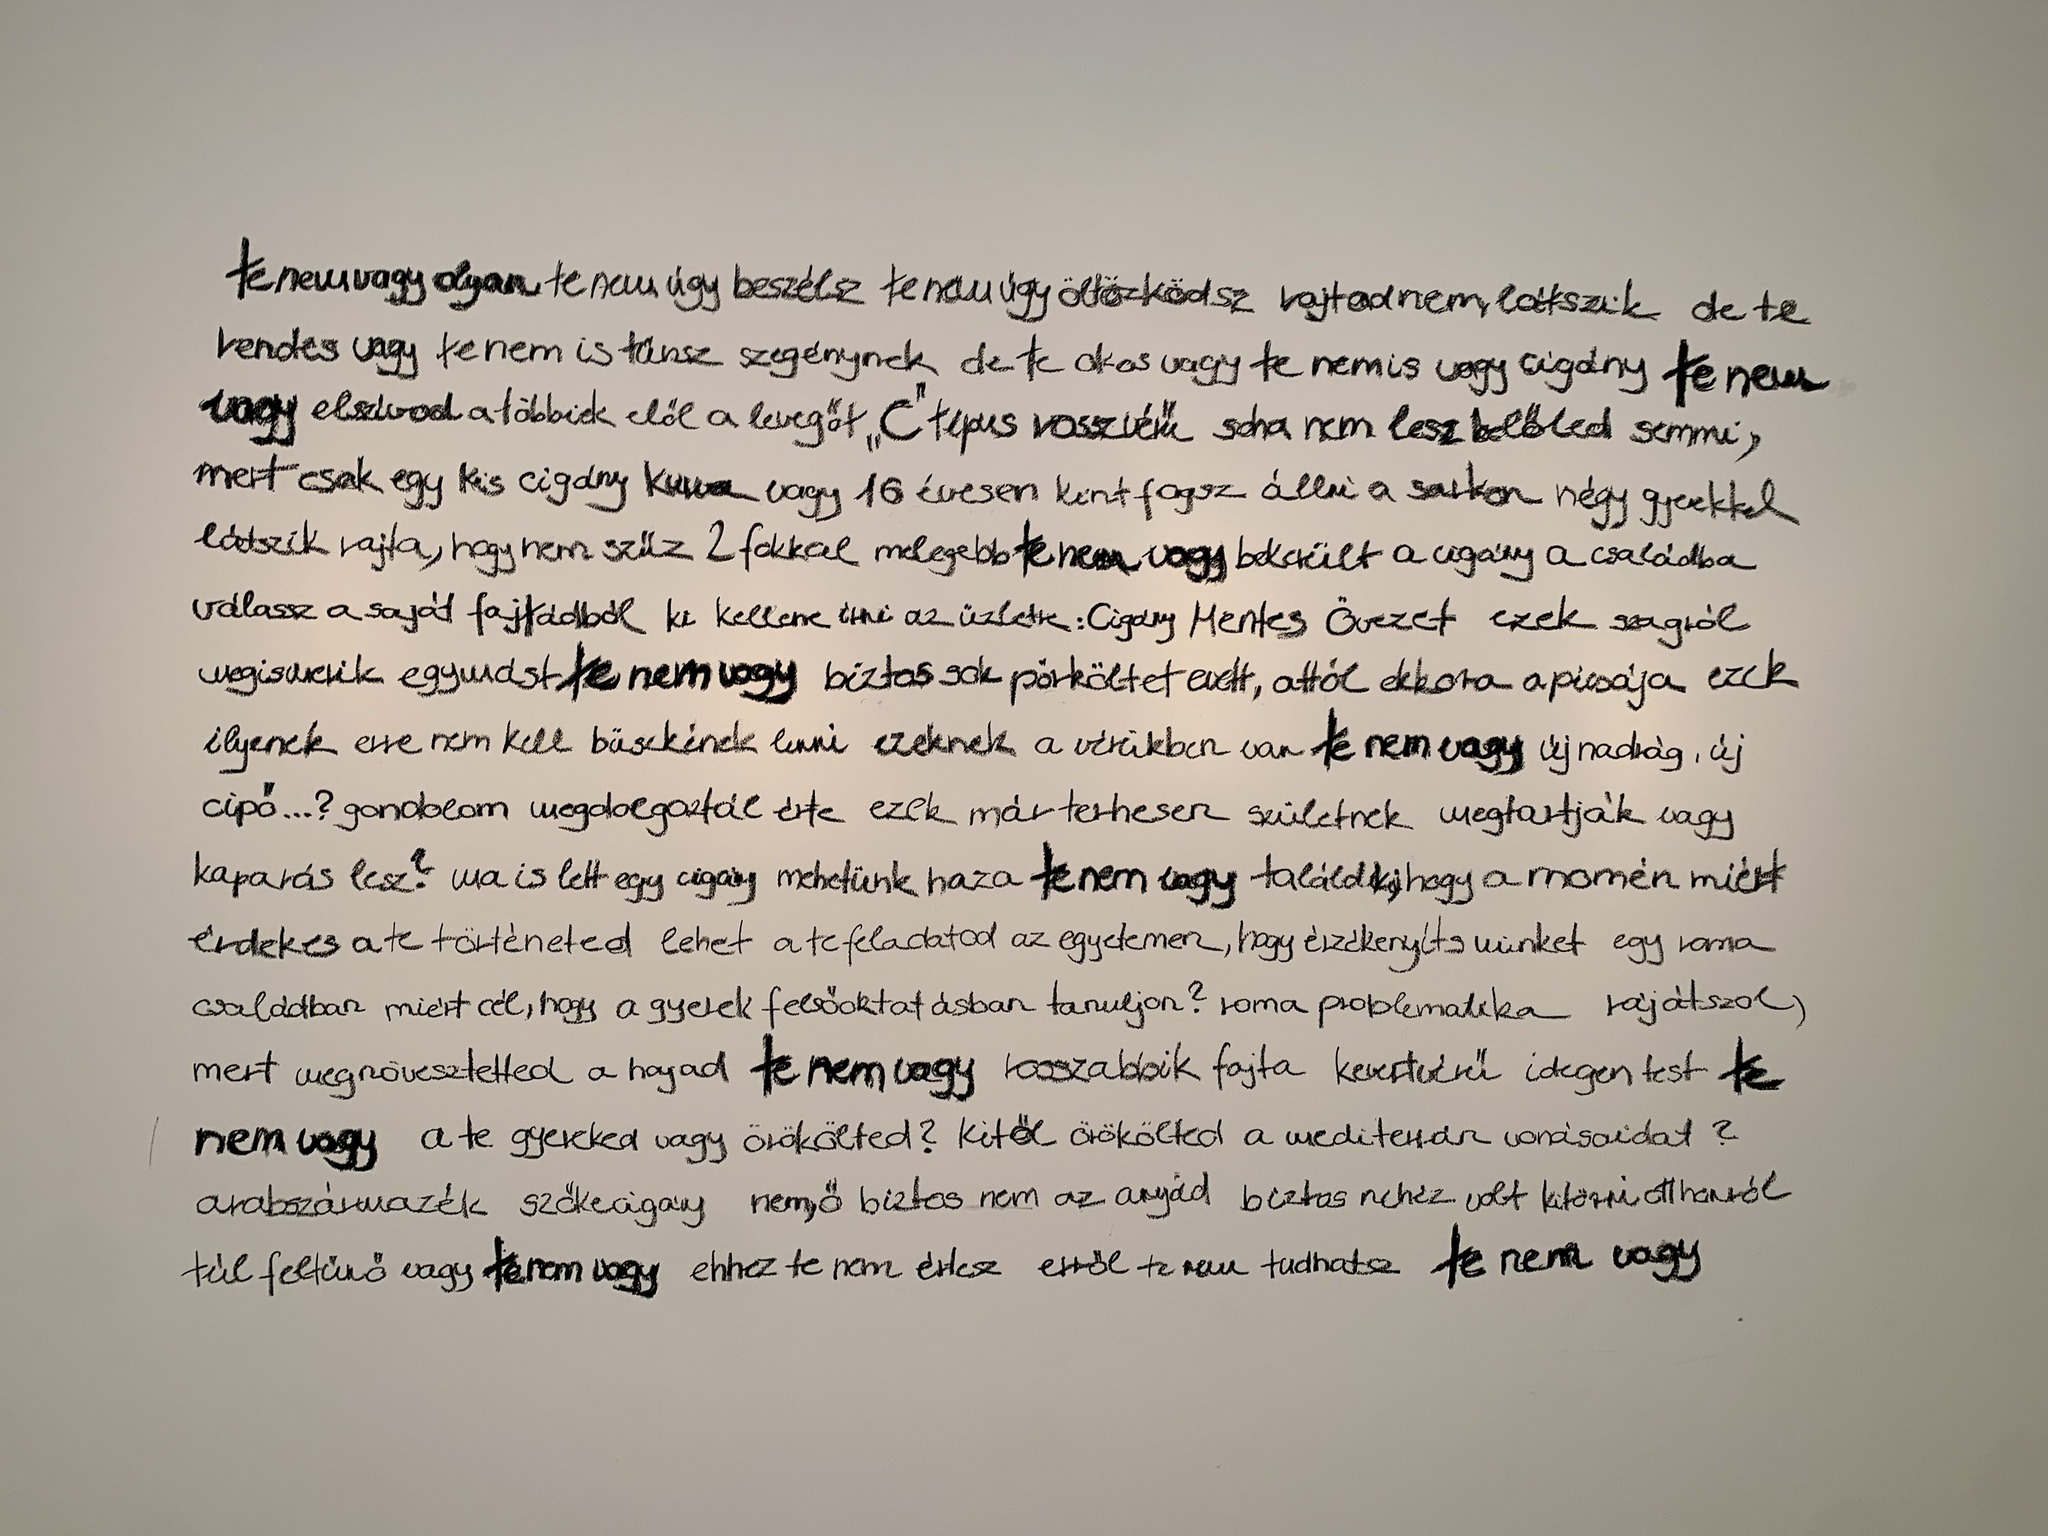 te nem vagy olyan te nem úgy beszélsz te nem úgy öltözködsz rajtad nem látszik de te
rendes vagy te nem is tűnsz szegénynek de te okos vagy te nem is vagy cigány te nem
vagy elszívod a többiek elől a levegőt „C" típus rosszvérű soha nem lesz belőled semmi,
mert csak egy kis cigány kurva vagy 16 évesen kint fogsz állni a sarkon négy gyerekkel
látszik rajta, hogy nem szűz 2 fokkal melegebb te nem vagy bekerült a cigány a családba
válassz a saját fajtádból ki kellene írni az üzletre: Cigány Mentes Övezet ezek szagról
megismerik egymást te nem vagy biztos sok pörköltet evett, attól ekkora a picsája ezek
ilyenek erre nem kell büszkének lenni ezeknek a vérükben van te nem vagy új nadrág, új
cipő...? gondolom megdolgoztál érte ezek már terhesen születnek megtartják vagy
kaparás lesz? ma is lett egy cigány mehetünk haza te nem vagy találd ki, hogy a momén miért
érdekes a te történeted lehet a te feladatod az egyetemen, hogy érzékenyíts minket egy roma
családban miért cél, hogy a gyerek felsőoktatásban tanuljon? roma problematika rájátszol,
mert megnövesztetted a hajad te nem vagy rosszabbik fajta kevertvérű idegen test te
nem vagy a te gyereked vagy örökölted? kitől örökölted a mediterrán vonásaidat?
arabszármazék szőkecigány nem, ő biztos nem az anyád biztos nehéz volt kitörni otthonról
túl feltűnő vagy te nem vagy ehhez te nem értesz erről te nem tudhatsz te nem vagy